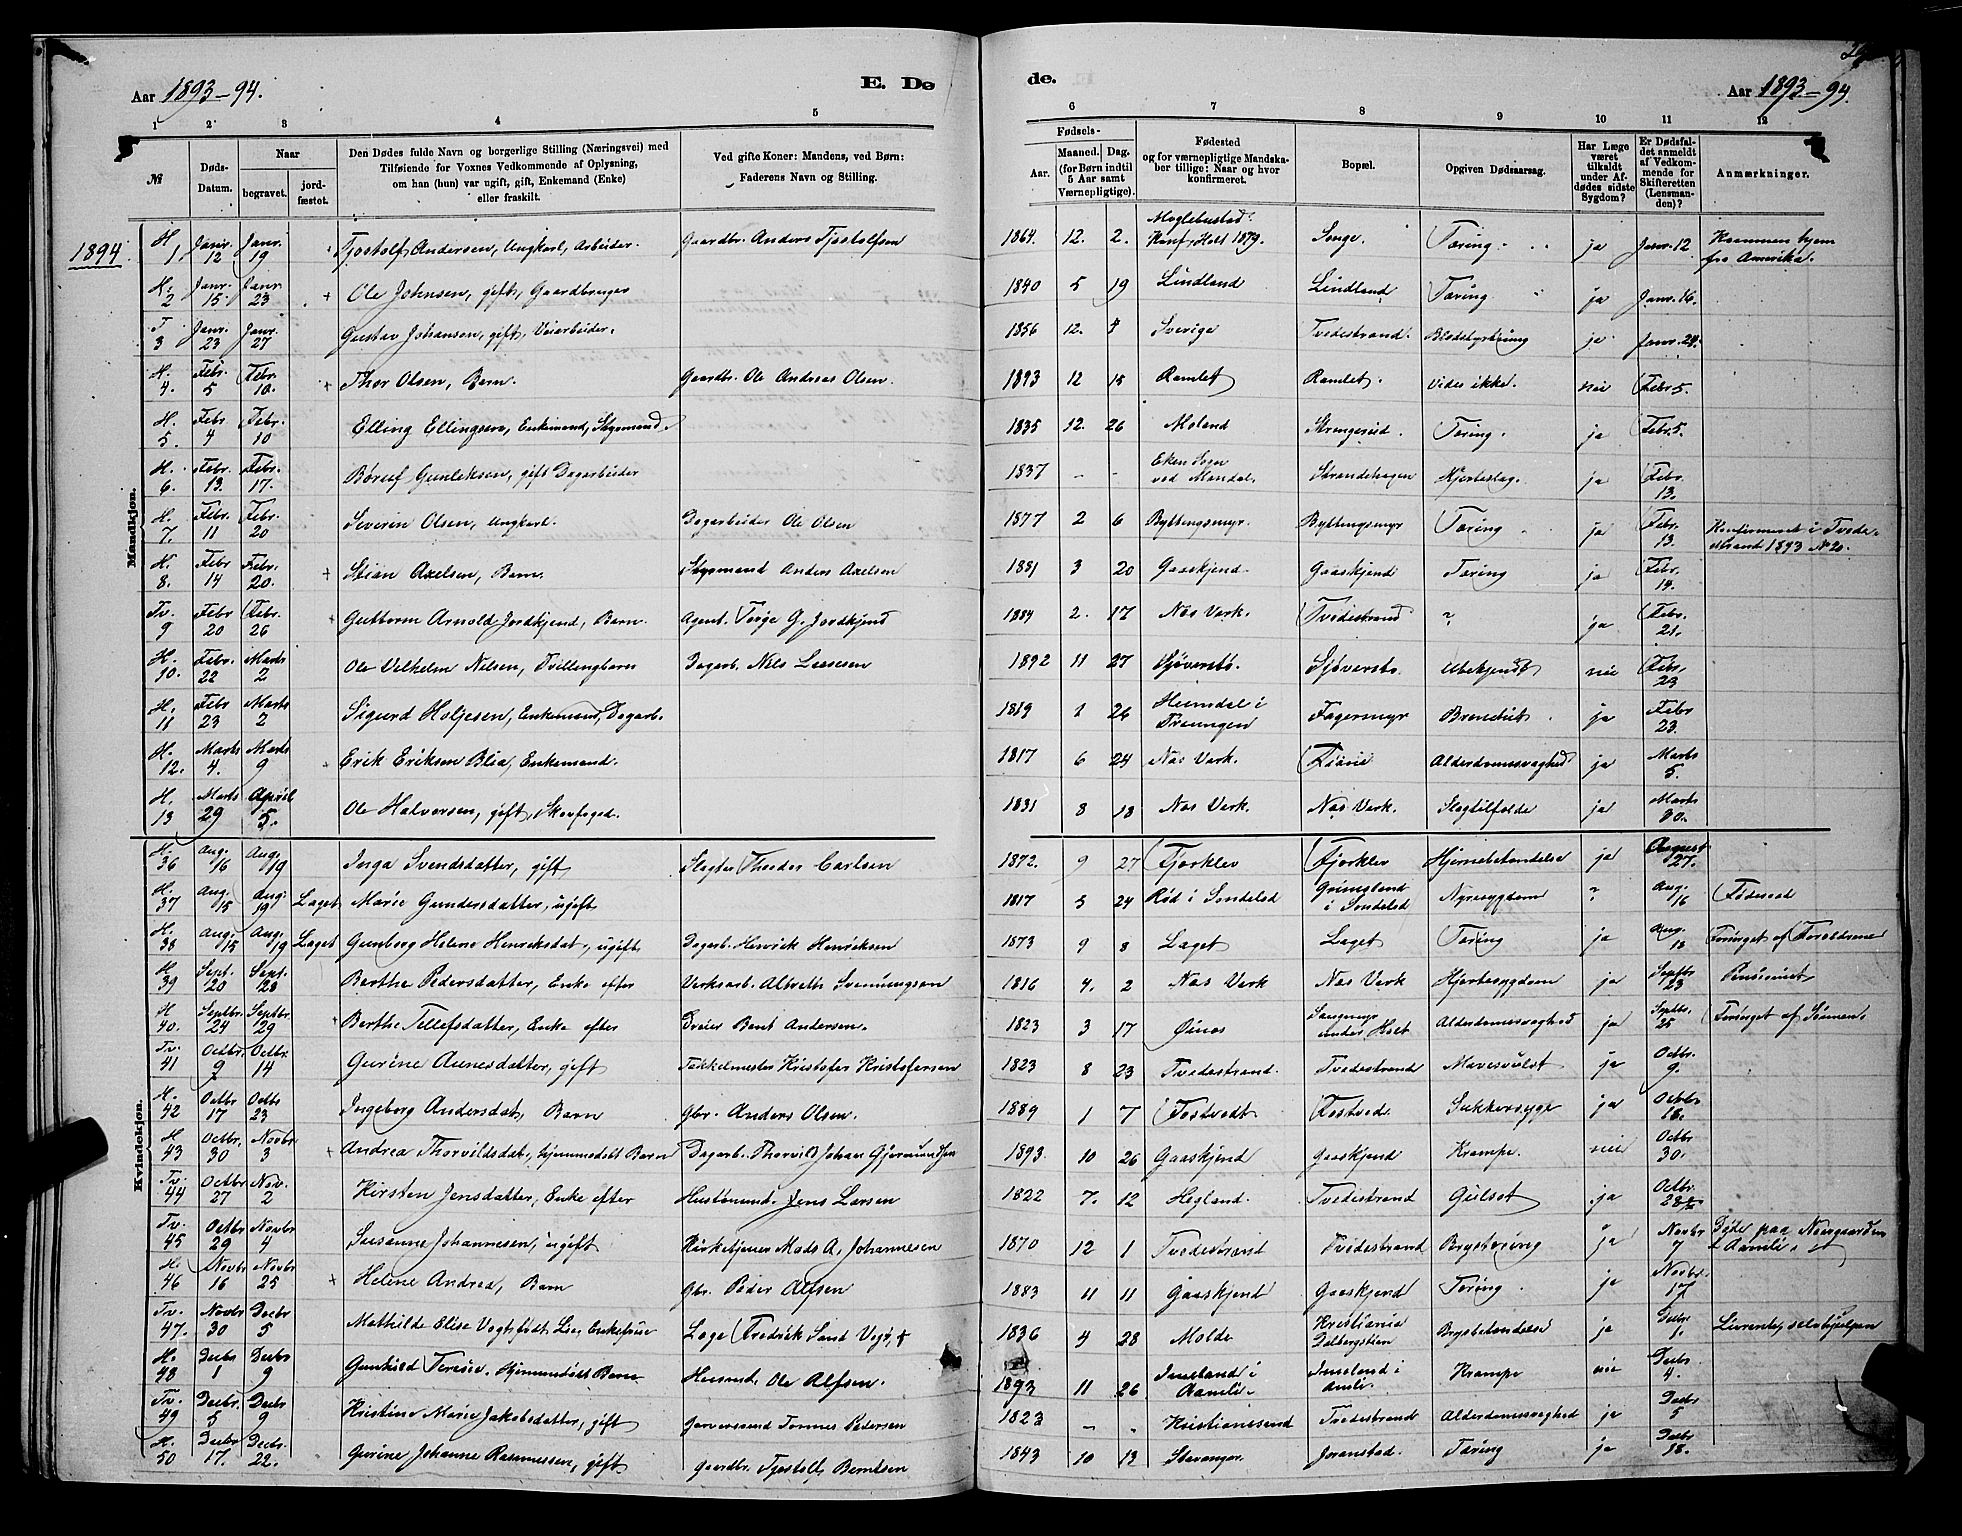 Aar 1893-94.
E. Dø
de.
Aar 1893-94.
1 2 3 4 5 6 7 8 9 10 11 12
№
Døds-Datum.
Naar
begravet.
jord-fæstet.
Den Dødes fulde Navn og borgerlige Stilling (Næringsvei) med
Tilføiende for Voxnes Vedkommende af Oplysning,
om han (hun) var ugift, gift, Enkemand (Enke)
eller fraskilt.
Ved gifte Koner: Mandens, ved Børn:
Faderens Navn og Stilling.
Fødsels-
Aar.
Maaned.
Dag.
(for Børn indtil
5 Aar samt
Værnepligtige).
Fødested
og for værnepligtige Mandska-
ber tillige: Naar og hvor
konfirmeret.
Bopæl.
Opgiven Dødsaarsag.
Har Læge
været
tilkaldt
under Af-
dødes sidste
Sygdom?
Er Dødsfal-
det anmeldt
af Vedkom-
mende for
Skifteretten
(Lensman-
den)?
Anmærkninger.
1894.
Mandkjøn.
H. 1 Janr. 12 Janr. 19 Tjostolf Andersen, Ungkarl, Arbeider. Gaardbr. Anders Tjostolfsen 1864. 12. 2. Konf. Holt 1879. Songe. Tæring ja Janr. 12 Kommen hjem fra Amerika.
H. 2 Janr. 15 Janr. 23 + Ole Johnsen, gift, Gaardbruger 1840 5 19 Lindland Lindland Tæring ja Janr. 16.
T 3 Janr. 23 Janr. 27 Gustav Johansen, gift, Veiarbeider. 1856 12. 4 Sverige Tvedestrand. Blodstyrtning ja Janr. 24.
H. 4. Febr. 5 Febr. 10. + Thor Olsen, Barn. Gaardbr. Ole Andreas Olsen. 1893 12 15 Ramlet Ramlet. Vides ikke. nei Febr 5.
H. 5. Febr 4 Febr. 10 Elling Ellingsen, Enkemand, 1835 12. 26 Moland Tæring. ja Febr. 5.
H. 6. Febr. 13. Febr. 17. Gunleksen, gift Dagarbeider 1837 - - Eken Sogn ved Mandal. Strandehagen Hjerteslag. ja Febr. 13.
H. 7. Febr. 11 Febr. 20 Severin Olsen, Ungkarl. Dagarbeider Ole Olsen 1877 2 6 Byttingsmyr. Byttingsmyr Tæring ja Febr. 13. Konfirmeret i Tvedestrand 1893 № 20.
H. 8. Febr 14 Febr. 20. + Stian Axelsen, Barn. Anders Axelsen 1881 3 20 Gaaskjend. Gaaskjend Tæring ja Febr. 14.
Tv. 9 Febr 20 Febr. 26 + Guttorm Arnold Jordkjend, Barn. Agent. Terje G. Jordkjend 1884 2. 17 Næs Verk. Tvedestrand ? ja Febr. 21.
H. 10. Febr. 22 Marts 2 Ole Vilhelm Nilsen, Tvillingbarn Dagarb. Nils Larsen 1892 11 27 Sjøverstø. Sjøverstø. Ubekjendt nei Febr. 23
H. 11 Febr 23 Marts 2 Sigurd Holjesen, Enkemand, Dagarb. 1819 1 26 Heimdal i Fagermyr ja Febr 23.
H. 12. Marts 4. Marts 9 Erik Eriksen Blia, Enkemand. 1817 6 24 Næs Verk. Alderdomssvaghed ja Marts 5.
H. 13 Marts 29 April 5. Ole Halvorsen, gift, Skovfoged. 1831 8 13 Næs Verk. Næs Verk. Slagtilfælde ja Marts 30.
Kvindekjøn.
H. 36 Aug. 16 Aug. 19 Inga Svendsdatter, gift Slagter Theodor Carlsen 1872. 9 27 Fjorklev Fjorklev Hjernebetændelse ja August 27.
H. 37 Aug. 15 Aug. 19 Laget Marie Gundersdatter, ugift 1817 5 24 Rød i Søndeled i Søndeled Nyresygdom ? Aug. 16 Føderaad
H. 38 Aug. 15 Aug. 19 Laget Gunborg Helene Henriksdat., ugift Dagarb. Henrick Henriksen 1873 9 8 Laget Laget Tæring ja Aug. 18 Forsørget af Forældrene
H 39 Sept. 20 Sept. 28 Berthe Pedersdatter, Enke efter Verksarb. Albreth Svenningsen 1816 4. 2 Næs Verk Næs Verk Hjertesygdom ja Septbr 23 Pensionist
H 40. Septbr 24 Septbr 29 + Berthe Tellefsdatter, Enke efter Dreier Bent Andersen. 1823 3 17 under Holt Alderdomssvaghed ja Septbr. 25 Forsørget af Sønnen.
Tv. 41 Octbr. 9 Octbr. 14 Gurine Aanesdatter, gift Takkelmester Kristofer Kristofersen 1823 8 23 Tvedestrand. Tvedestrand Mavesvulst ja Octbr. 9.
H. 42 Octbr 17 Octb 23 Ingeborg Andersdat., Barn Gbr. Anders Olsen. 1889 1 7 Fostvedt Fostved. Sukkersyge ja Octbr 18.
H 43 Octbr. 30 Novbr 3 + Andrea Thorvildsdat., hjemmedøbt Barn Dagarb. Thorvild Johan Gjermundsen 1893. 10 26 Gaaskjend Gaaskjend Krampe. nei Octbr. 30.
Tv. 44 Octbr 27 Nov. 2 Kirsten Jensdatter, Enke efter Hustømmd. Jens Larsen 1822 7. 12 Hegland. Tvedestrand Gulsot ja Octbr. 28
Tv. 45 Octbr 29 Novbr 4 Susanne Johannesen, ugift Kirketjener Mads A. Johannesen 1870 12 1 Tvedestrand Tvedestrand Brystsving ja Novbr 7 Døde paa Næsgaarden i Aamli.
H. 46 Novbr 16 Novbr 25 + Helene Andrea, Barn Gbr. Peder Alfsen 1883 11 11 Gaaskjend Gaaskjend Tæring ja Novbr. 17
Tv. 47. Novbr 30 Decbr 5 Mathilde Elise Vogt, født Lie, Enkefrue Læge Fredrik Sand Vogt, † 1836 4 28 Molde Kristiania Brystbetændelse ja Decbr. 1. Livrente, selvhjulpen
H. 48 Decbr 1 Decbr 9 Gunhild Teresie, Hjemmedøbt Barn Husmd. Ole Alfsen. 1893 11 26 i Aamli. i Amli. Krampe nei Decbr. 4.
Tv. 49 Decbr. 5 Decbr 9 Kristine Marie Jakobsdatter, gift Garversvend Tønnes Pedersen 1823 - " Kristianssand Tvedestrand Alderdomssvaghed ja Decbr 5
H. 50 Decbr 17. Decbr. 22. Gurine Johanne Rasmussen, gift Gaardbr. Tjostolf Berntsen 1843 10 13 Stavanger. Joranstad. Tæring ja Decbr 18.